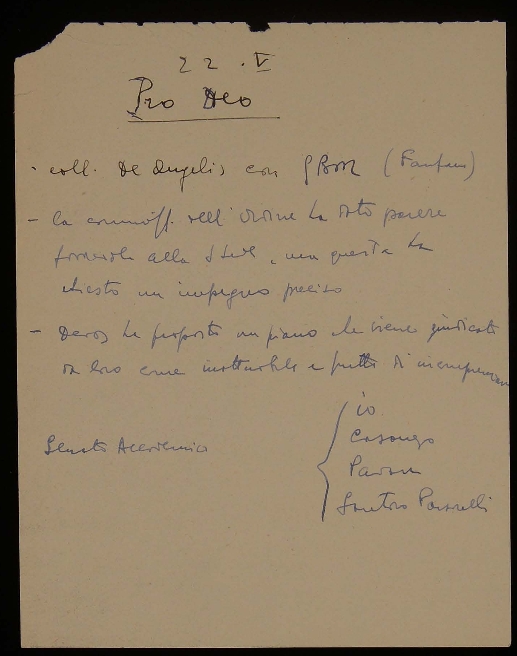 22.V
Pro Deo
- coll. De Angelis con (Fanfani)
- la commiss. dell' Ordine ha dato parere
favorevole alla , ma questa ha
chiesto un impegno preciso
- ha proposto un piano che viene giudicato
da loro come inattuabile e frutto di incomprensione
Senato Accademico
io
Pavan
Santoro Passarelli